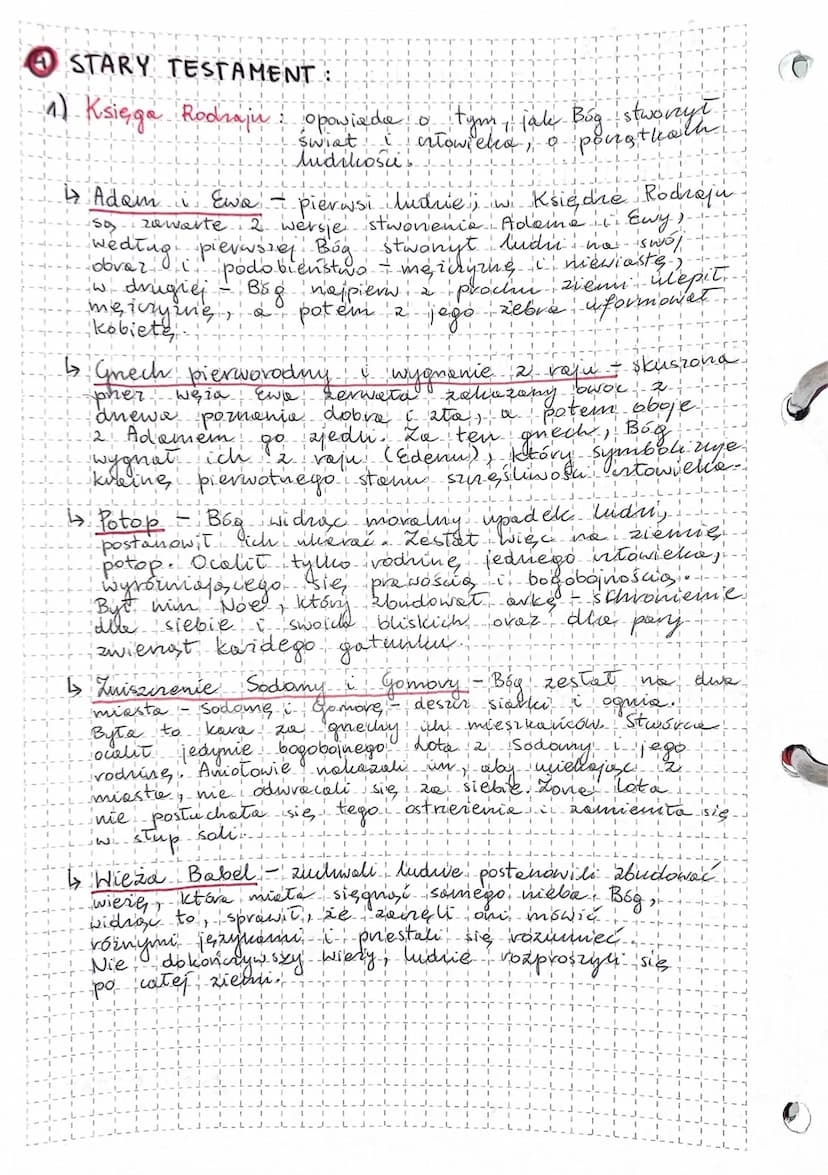 1 STARY TESTAMENT:
1) Księga Rodzaju: opowiada o tym, jak Bóg stworzył
świat i człowieka, o początkach
ludzkości.
↳ Adam i Ewa – pierwsi ludzie; w Księdze Rodzaju
są zawarte 2 wersje stworzenia Adama i Ewy;
według pierwszej Bóg stworzył ludzi na swój
obraz i podobieństwo – mężczyznę i niewiastę;
w drugiej – Bóg najpierw z prochu ziemi ulepił
mężczyznę, a potem z jego żebra uformował
kobietę.
↳ Grzech pierworodny i wygnanie z raju – skuszona
przez węża Ewa zerwała zakazany owoc z
drzewa poznania dobra i zła, a potem oboje
z Adamem go zjedli. Za ten grzech, Bóg
wygnał ich z raju (Edenu), który symbolizuje
krainę pierwotnego stanu szczęśliwości człowieka.
↳ Potop – Bóg widząc moralny upadek ludzi,
postanowił ich ukarać. Zesłał więc na ziemię
potop. Ocalił tylko rodzinę jednego człowieka,
wyróżniającego się prawością i bogobojnością.
Był nim Noe, który zbudował arkę – schronienie
dla siebie i swoich bliskich oraz dla pary
zwierząt każdego gatunku.
↳ Zniszczenie Sodomy i Gomory – Bóg zesłał na dwa
miasta – Sodomę i Gomorę – deszcz siarki i ognia.
Była to kara za grzechy ich mieszkańców. Stwórca
ocalił jedynie bogobojnego Lota z Sodomy i jego
rodzinę. Aniołowie nakazali im, aby uciekając z
miasta, nie odwracali się za siebie. Żona Lota
nie posłuchała się tego ostrzeżenia i zamieniła się
w słup soli.
↳ Wieża Babel – zuchwali ludzie postanowili zbudować
wieżę, która miała sięgnąć samego nieba. Bóg,
widząc to, sprawił, że zaczęli oni mówić
różnymi językami i przestali się rozumieć.
Nie dokończywszy wieży, ludzie rozproszyli się
po całej ziemi.